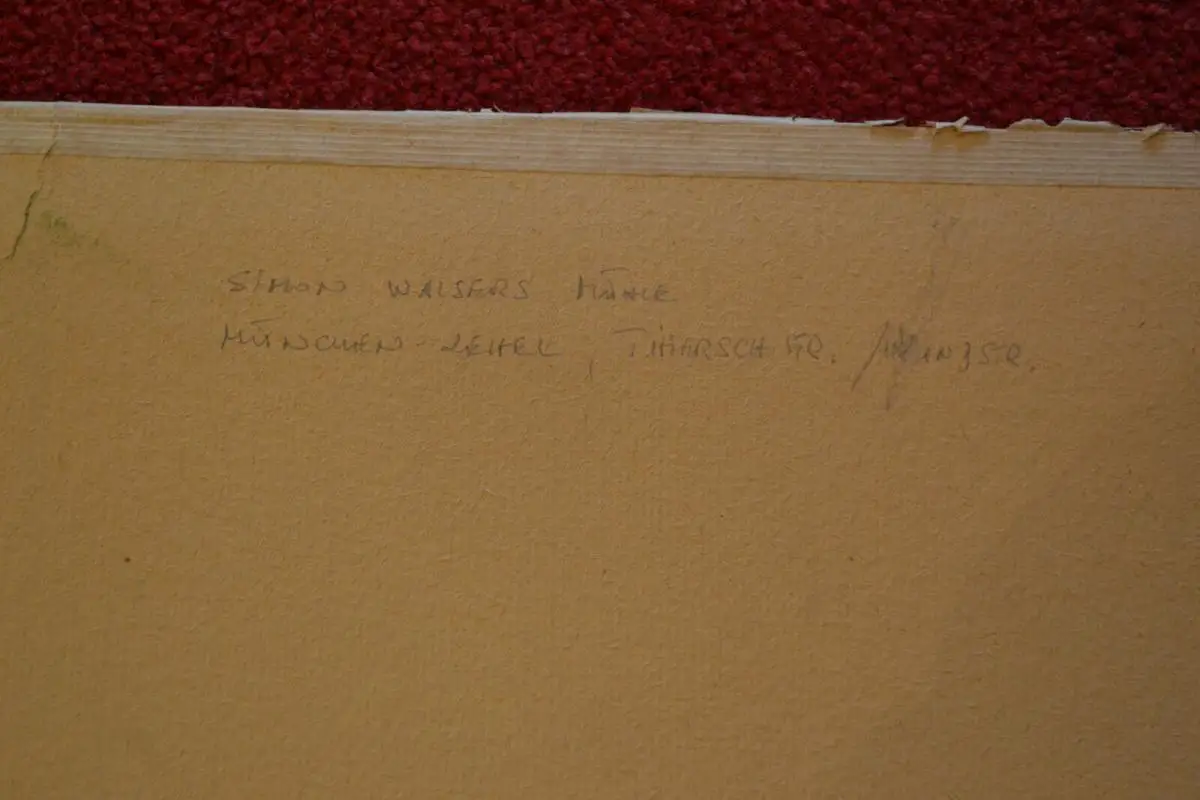 SIMON WALSERS MÜHLE
MÜNCHEN-LEHEL, THIERSCHSTR. /